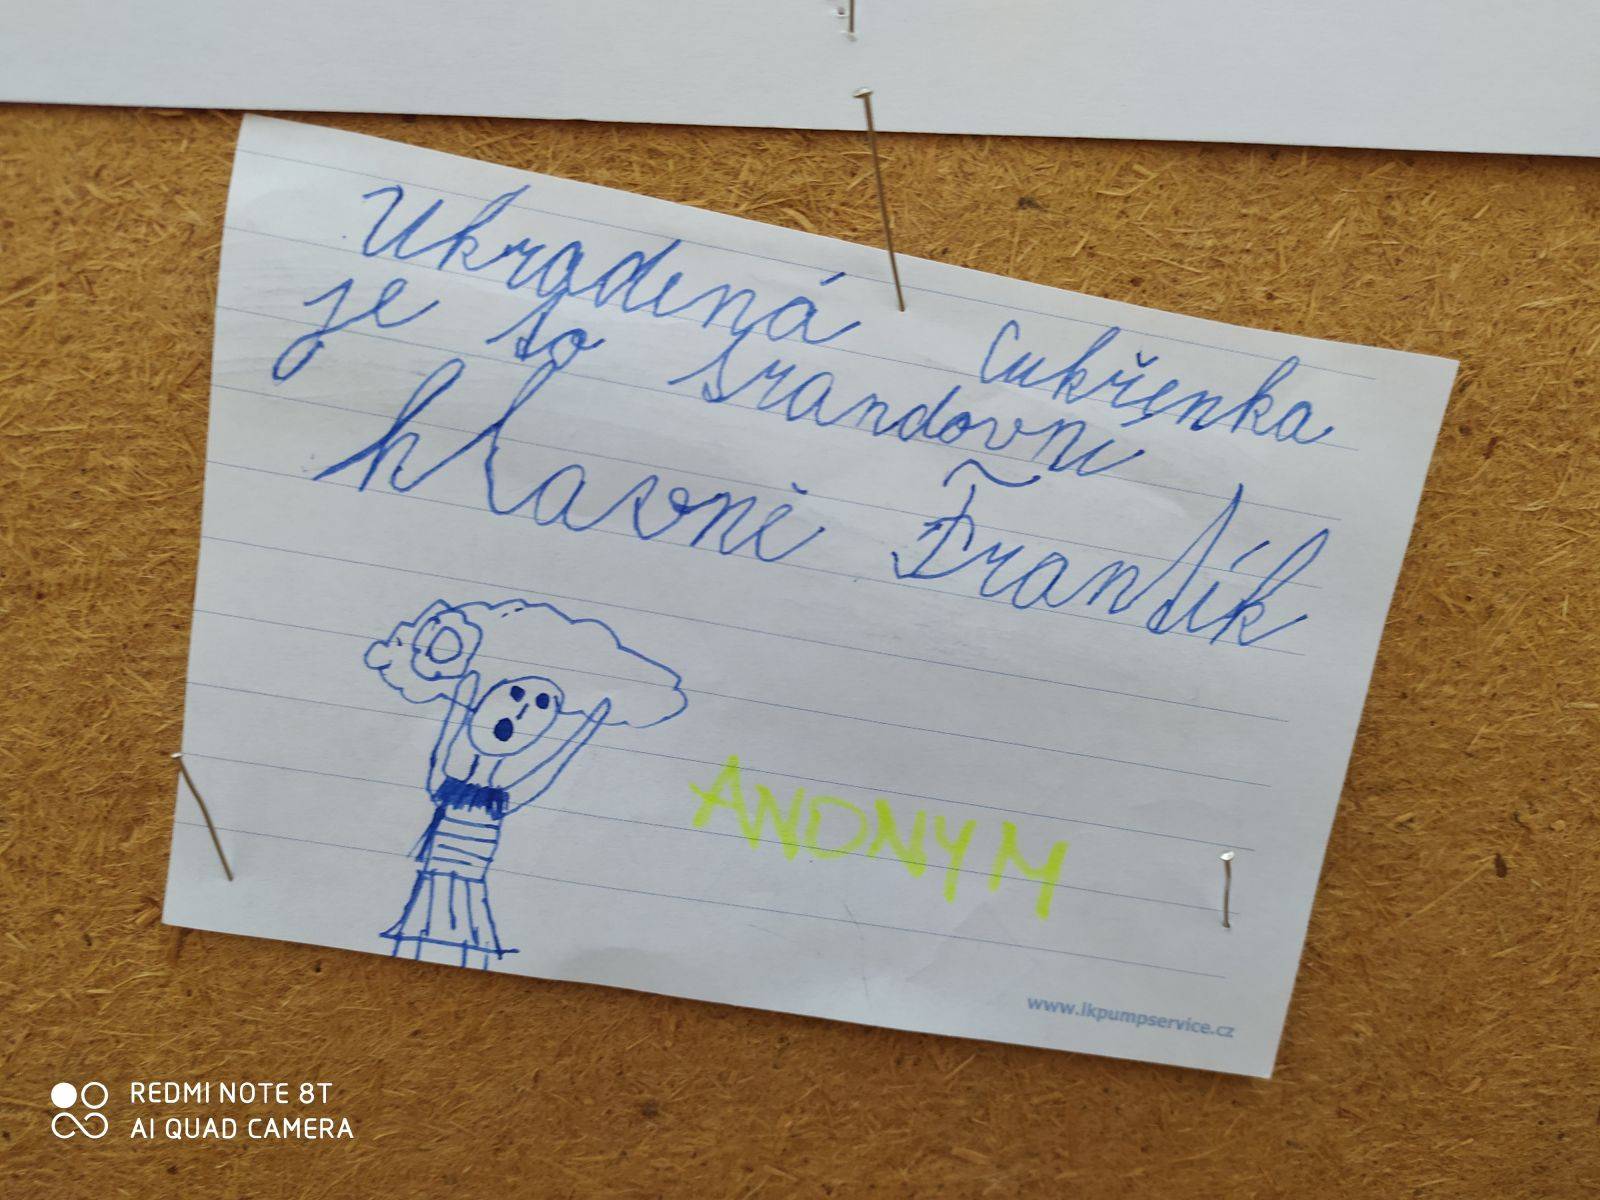 Ukradená cukřenka
je to srandovní
hlavně Frantík
ANONYM
www.ikpumpservice.cz
REDMI NOTE 8T
AI QUAD CAMERA